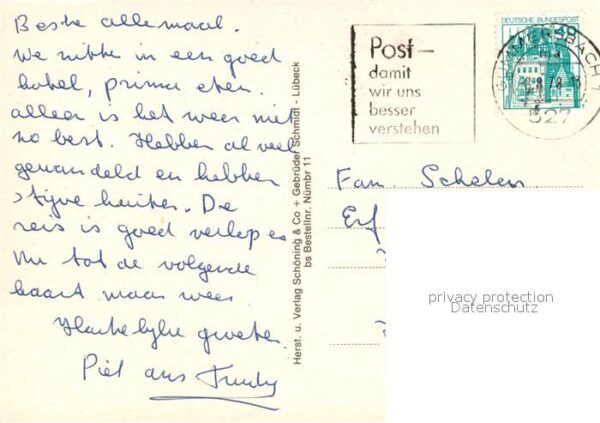 Beste allemaal.
We zitten in een goed
hotel, prima eten.
alleen is het weer niet
zo best. Hebben al veel
gewandeld en hebben
stijve kuiten. De
reis is goed verlopen
Nu tot de volgende
kaart maar weer.
Hartelijke groeten.
Piet
Herst. u. Verlag Schöning & Co + Gebrüder Schmidt - Lübeck
bs Bestellnr. Nümbr 11
Post-
damit
wir uns
besser
verstehen
DEUTSCHE BUNDESPOST
GUMMERSBACH 1
527
Fam.
privacy protection
Datenschutz